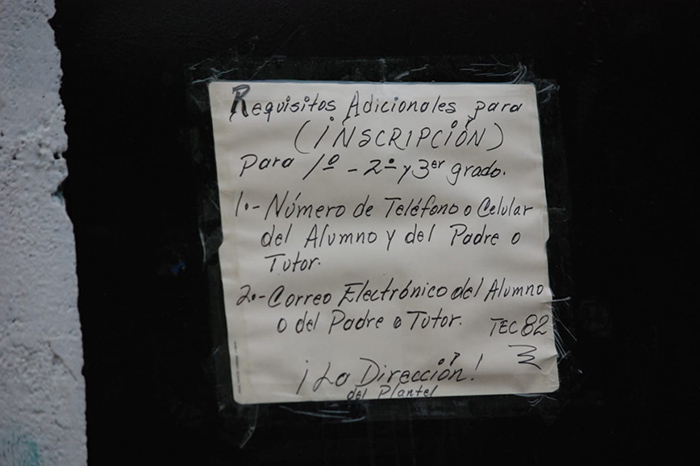 Requisitos Adicionales para
(iNSCRIPCIÓN)
para 1º - 2º y 3er grado.
1.- Número de Teléfono o Celular
del Alumno y del Padre o
Tutor.
2.- Correo Electrónico del Alumno
o del Padre o Tutor.
TEC 82
¡La Dirección!
del Plantel